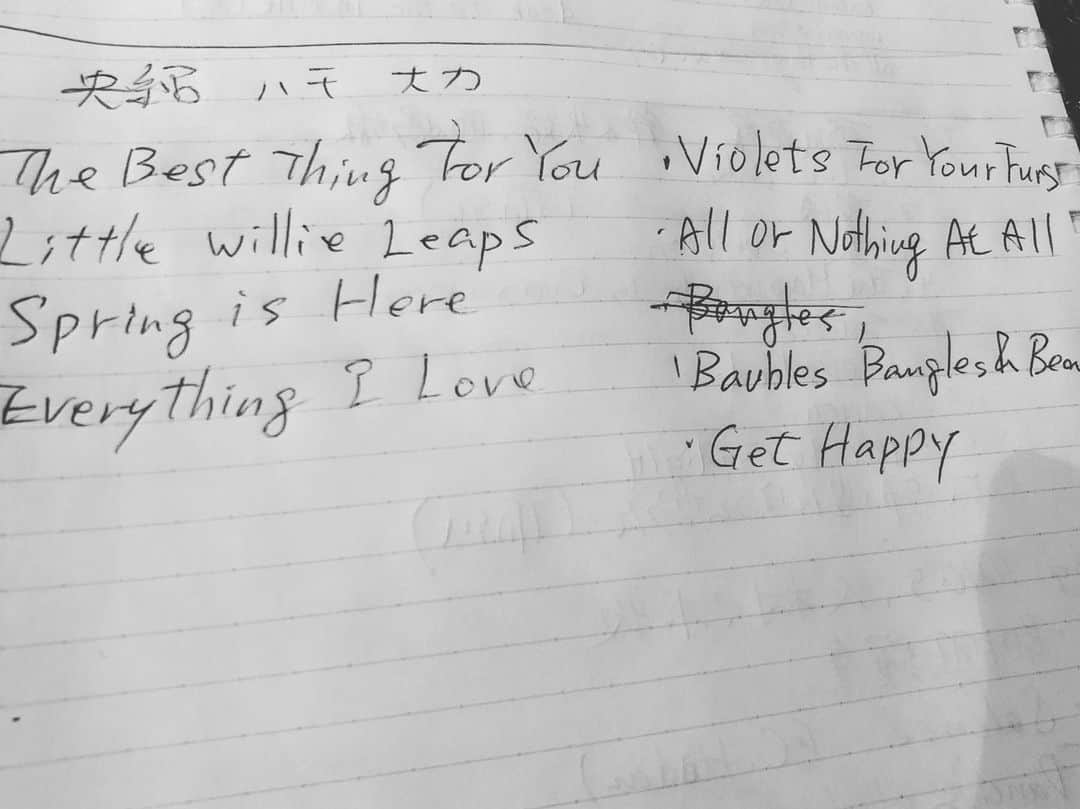 央紹 八千 大力
The Best Thing For You
Little Willie Leaps
Spring is Here
Everything I Love
・Violets For Your Furs
・All Or Nothing At All
Bangles,
・Baubles Bangles & Bea
・Get Happy